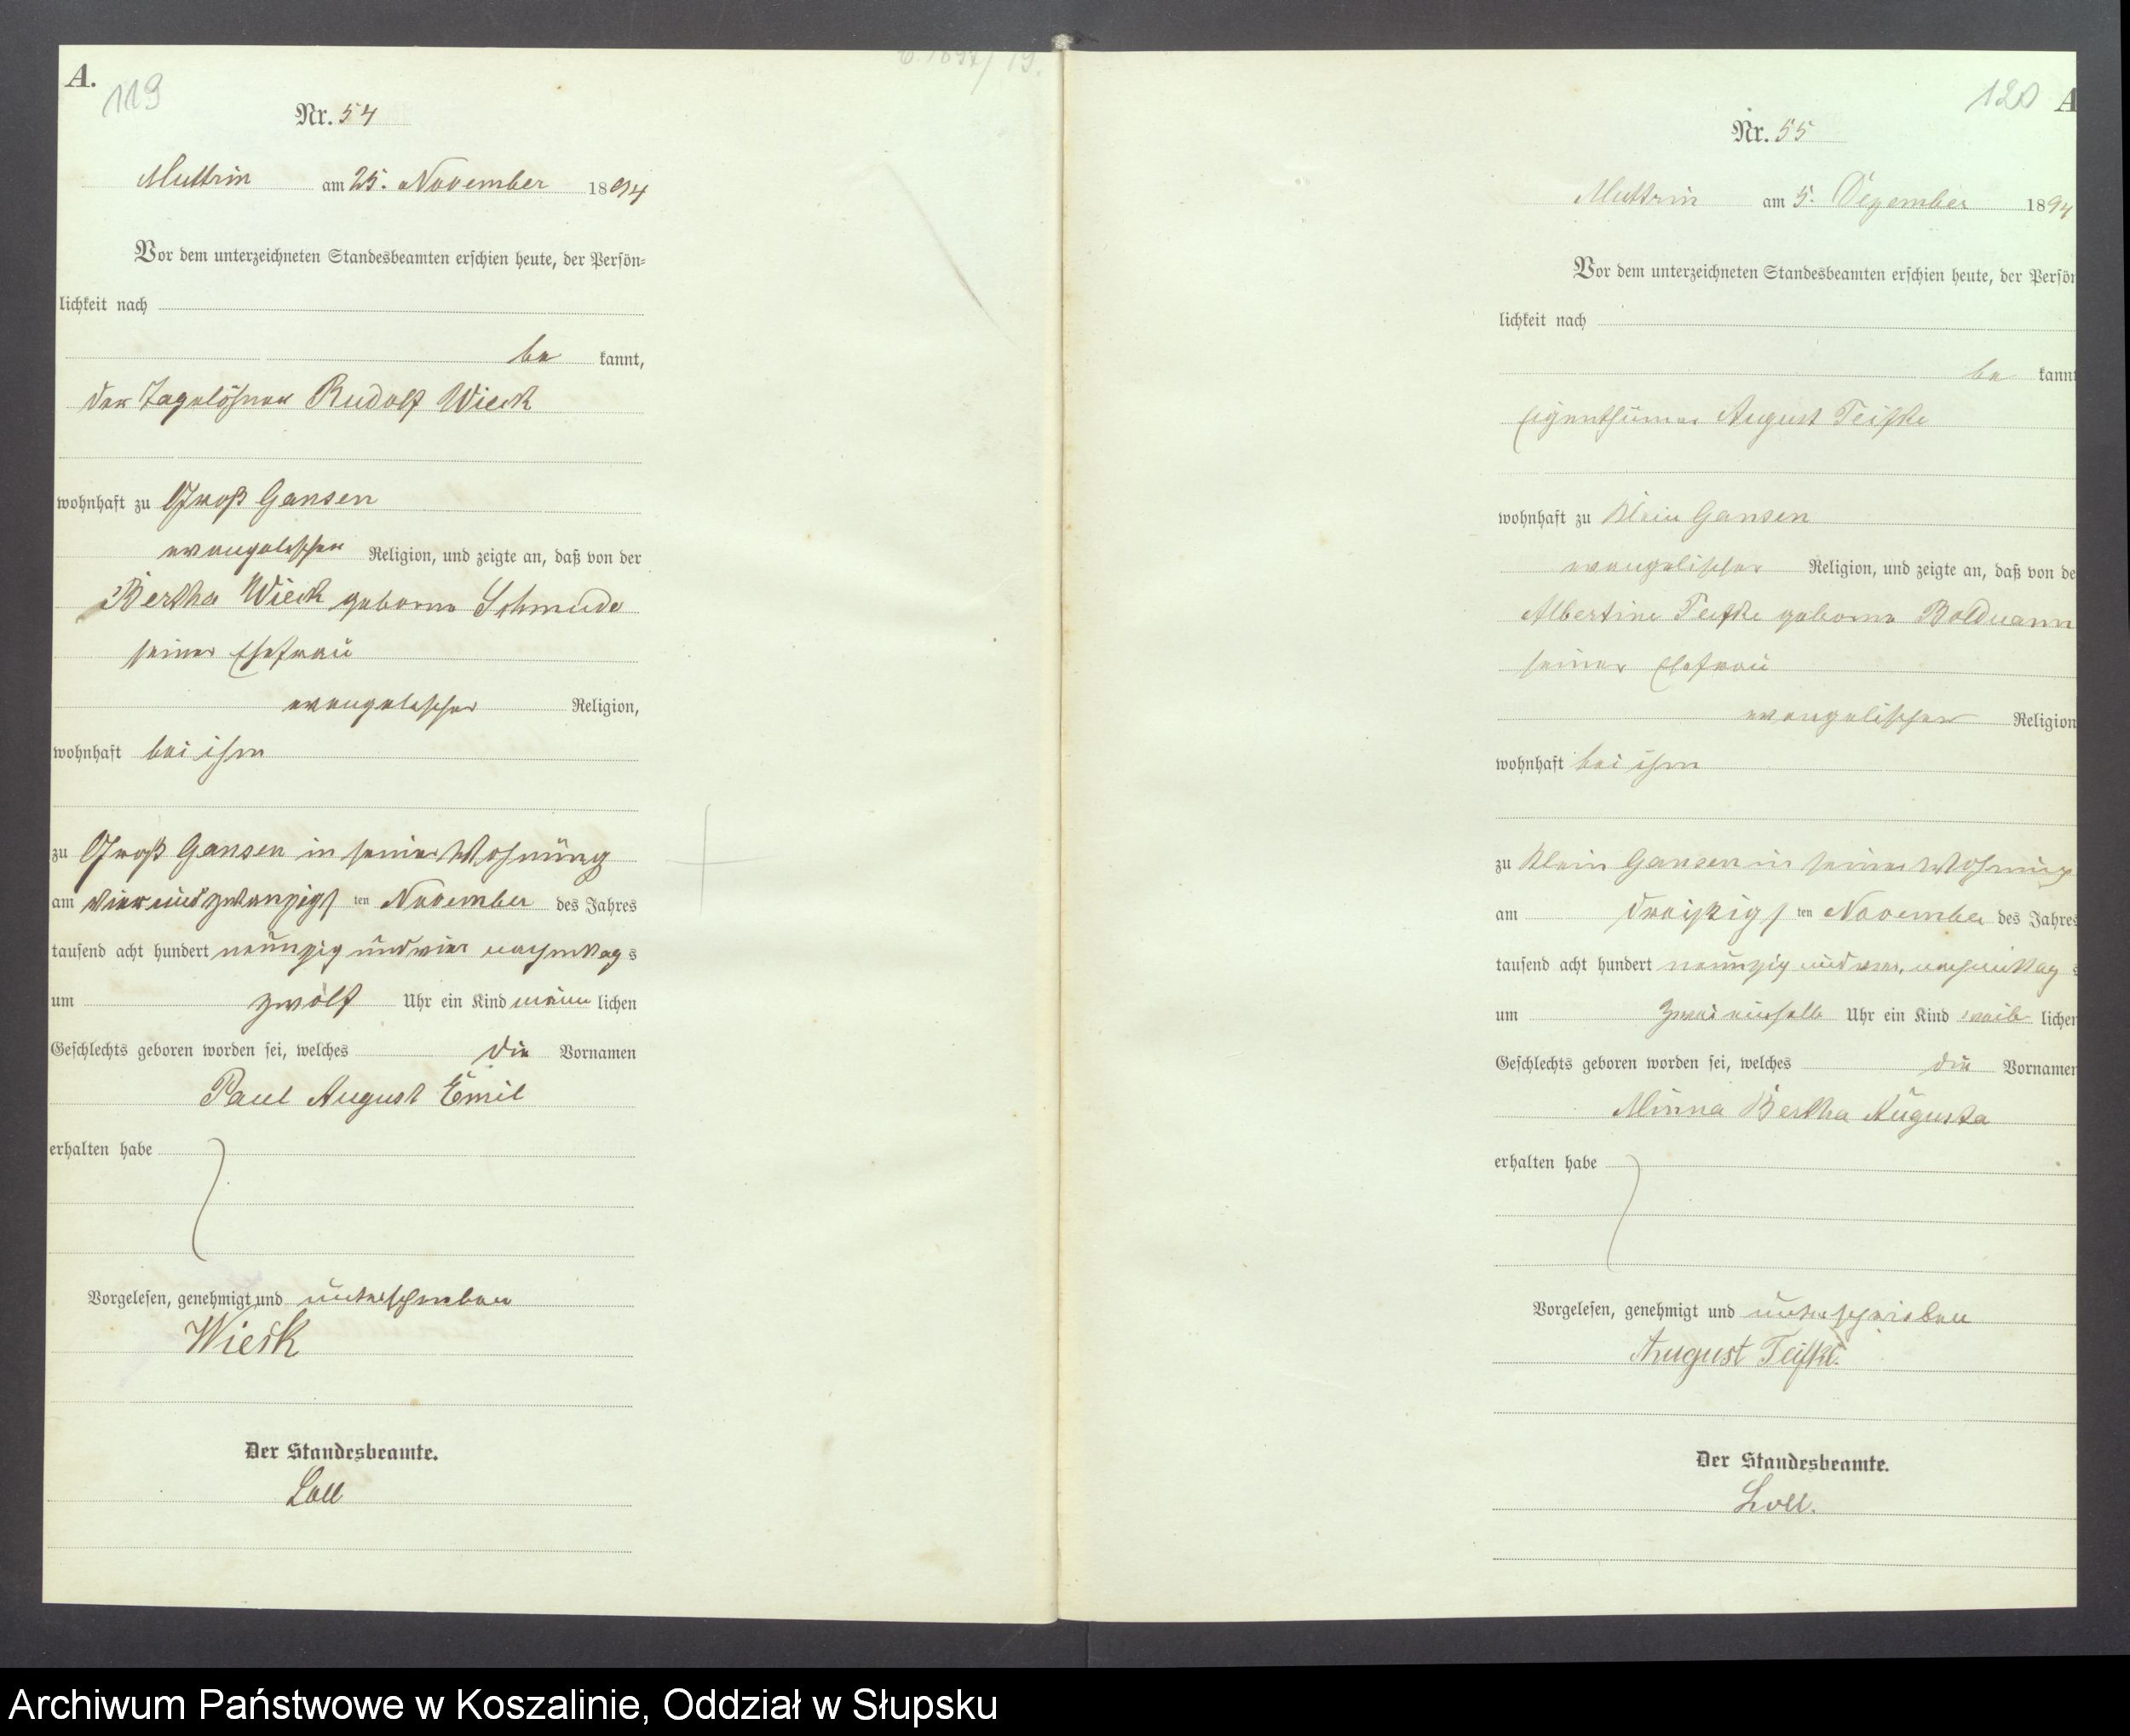 A.
119
Nr. 54
Muttrin am 25. November 1894
Vor dem unterzeichneten Standesbeamten erschien heute, der Persön-
lichkeit nach
be kannt,
der Tagelöhner Rudolf Wieck
wohnhaft zu Groß Gansen
evangelischer Religion, und zeigte an, daß von der
Bertha Wieck geborne Schmude
seiner Ehefrau
evangelischer Religion,
wohnhaft bei ihm
zu Groß Gansen in seiner Wohnung
am vierundzwanzigs ten November des Jahres
tausend acht hundert neunzig und vier nachmittag s
um zwölf Uhr ein Kind männ lichen
Geschlechts geboren worden sei, welches die Vornamen
Paul August Emil
erhalten habe
Vorgelesen, genehmigt und unterschrieben
Wieck
Der Standesbeamte.
Loll
120
A
Nr. 55
Muttrin am 5. Dezember 1894
Vor dem unterzeichneten Standesbeamten erschien heute, der Persön
lichkeit nach
be kannt
Eigenthümer August Teifke
wohnhaft zu Klein Gansen
evangelischer Religion, und zeigte an, daß von de
Albertine Teifke geborne Bolduann
seiner Ehefrau
evangelischer Religion
wohnhaft bei ihm
zu Klein Gansen in seiner Wohnung
am dreißigs ten November des Jahres
tausend acht hundert neunzig und vier, nachmittag s
um zwei einhalb Uhr ein Kind weib licher
Geschlechts geboren worden sei, welches die Vornamen
Minna Bertha Augusta
erhalten habe
Vorgelesen, genehmigt und unterschrieben
August Teifke.
Der Standesbeamte.
Loll.
Archiwum Państwowe w Koszalinie, Oddział w Słupsku